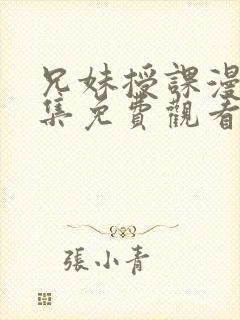 兄妹授課漫
集免費觀看
張小青